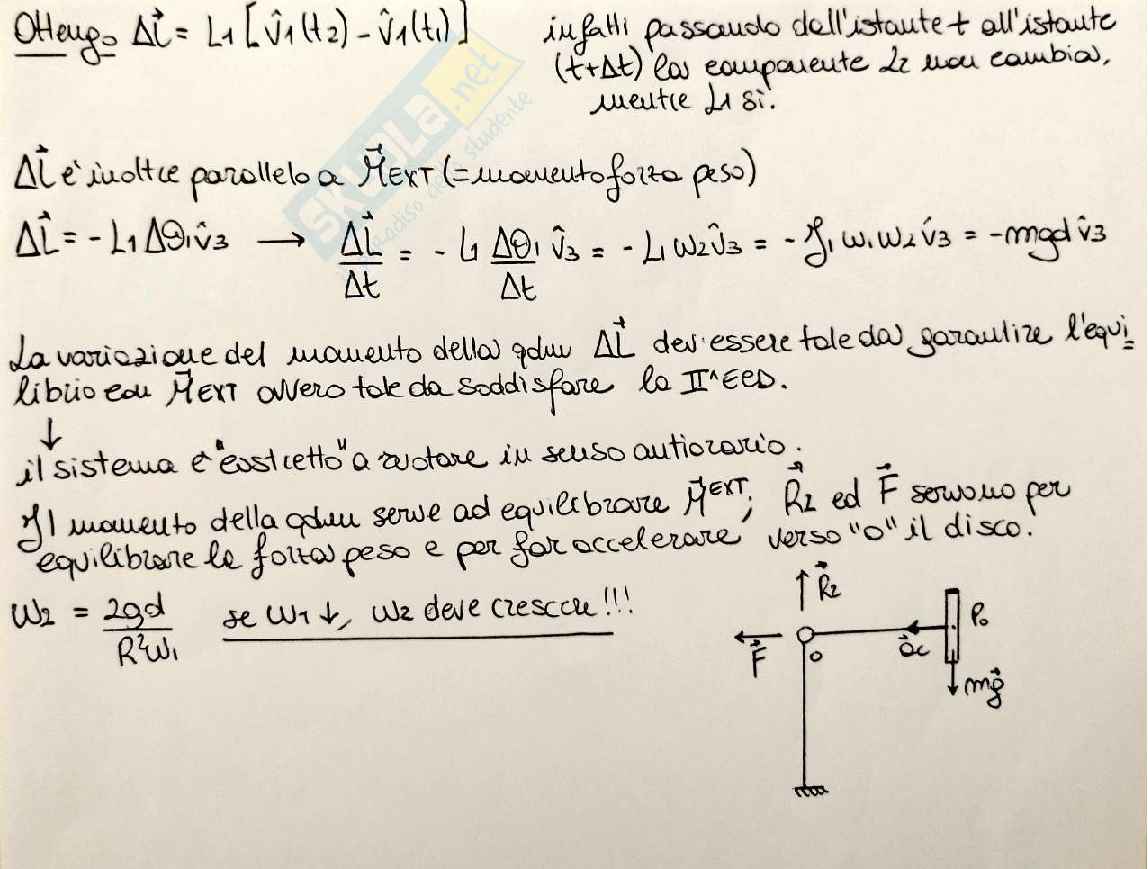 Ottengo ΔL⃗ = L1 [v̂1(t2) - v̂1(t1)]
infatti passando dall'istante t all'istante
(t+Δt) la componente L2 non cambia,
mentre L1 sì.
SKUOLA.net
paradiso dello studente
ΔL⃗ è inoltre parallelo a M⃗EXT (= momento forza peso)
ΔL⃗ = - L1 Δθ1 v̂3 → ΔL⃗/Δt = - L1 Δθ1/Δt v̂3 = - L1 ω2 v̂3 = - J1 ω1 ω2 v̂3 = -mgd v̂3
La variazione del momento della qdm ΔL⃗ dev'essere tale da garantire l'equi=
librio con M⃗EXT ovvero tale da soddisfare la II^ECD.
↓
il sistema è "costretto" a ruotare in senso antiorario.
Il momento della qdm serve ad equilibrare M⃗EXT; R⃗2 ed F⃗ servono per
equilibrare la forza peso e per far accelerare verso "O" il disco.
ω2 = 2gd/R²ω1 se ω1 ↓, ω2 deve crescere!!!
R⃗2
F⃗
O
a⃗c
P0
mg⃗